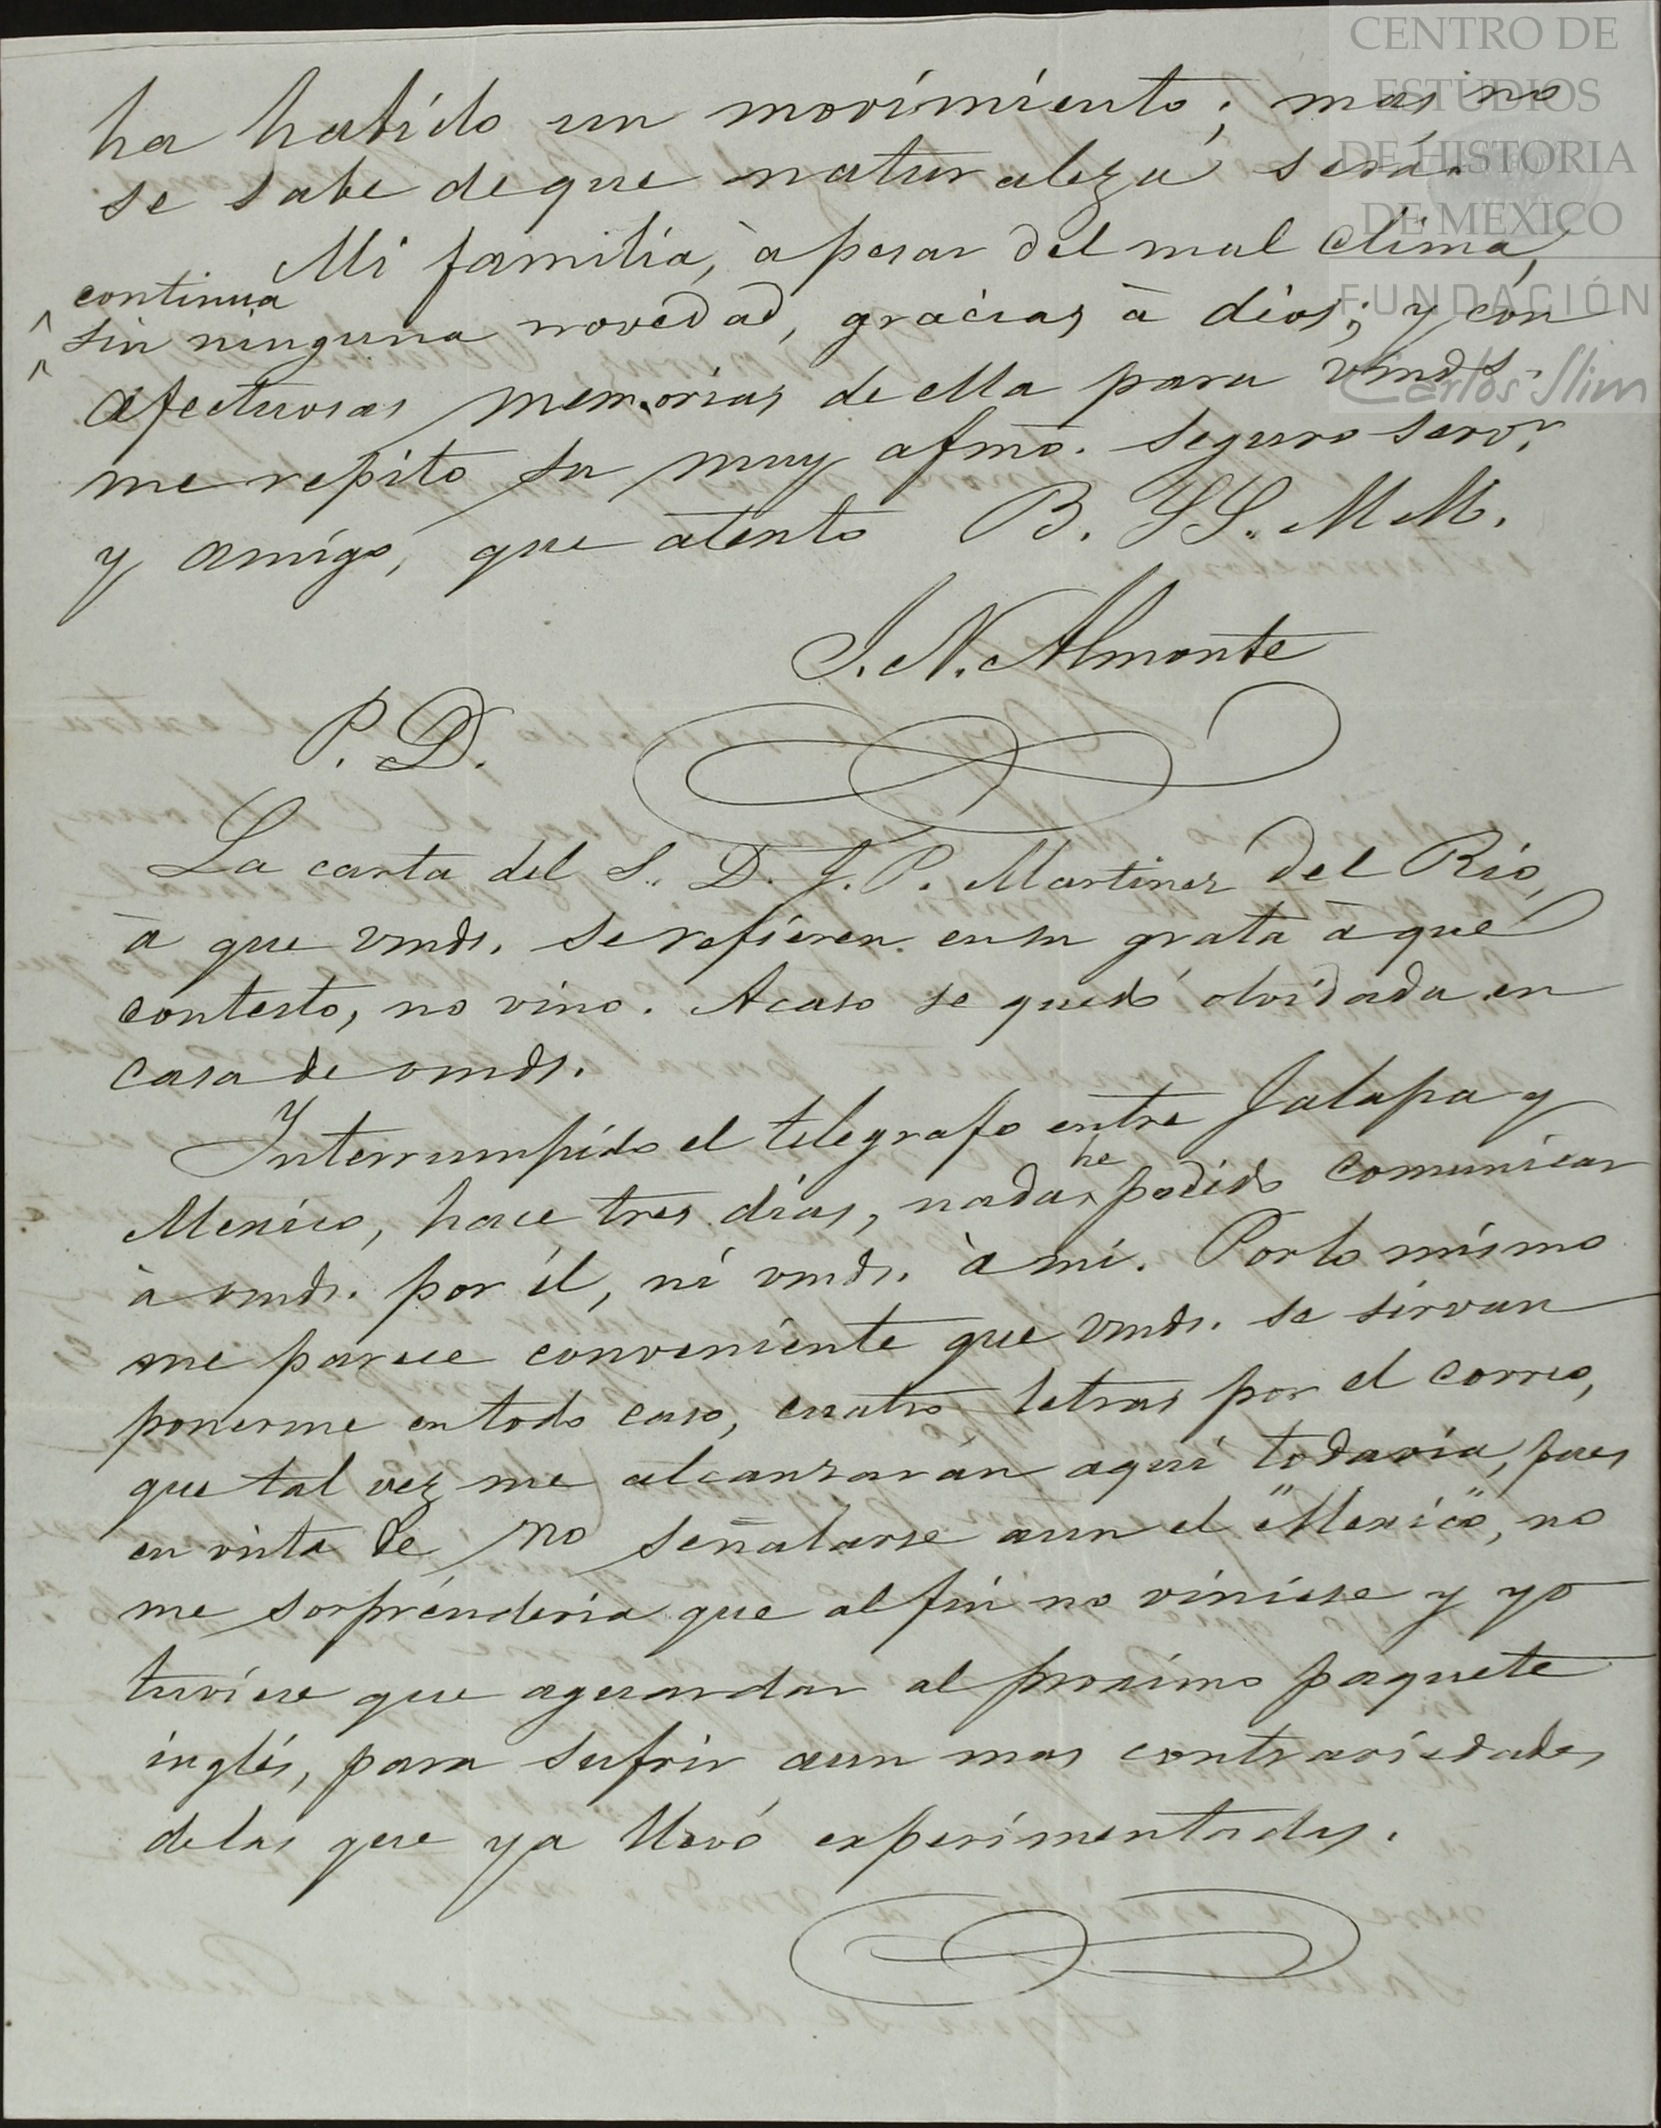 CENTRO DE
ESTUDIOS
DE HISTORIA
DE MEXICO
FUNDACIÓN
Carlos Slim
ha habido un movimiento; mas no
se sabe de que naturaleza será.
Mi familia, à pesar del mal clima,
continua
sin ninguna novedad, gracias à dios; y con
afectuosas memorias de ella para vmds.
me repito su muy afmo. seguro servr.
y amigo, que atento B. SS. MM.
J. N. Almonte
P. D.
La carta del S. D. J. P. Martinez del Rio,
à que vmds. se refieren en su grata à que
contesto, no vino. Acaso se quedó olvidada en
casa de vmds.
Interrumpido el telegrafo entre Jalapa y
he
Mexico, hace tres dias, nada podido comunicar
à vmds. por él, ni vmds. à mi. Por lo mismo
me parece conveniente que vmds. se sirvan
ponerme en todo caso, cuatro letras por el correo,
que tal vez me alcanzarán aquí todavia, pues
en vista de no señalarse aun el "Mexico", no
me sorprenderia que al fin no viniese y yo
tuviese que aguardar al proximo paquete
inglés, para sufrir aun mas contrariedades
de las que ya llevó experimentadas.